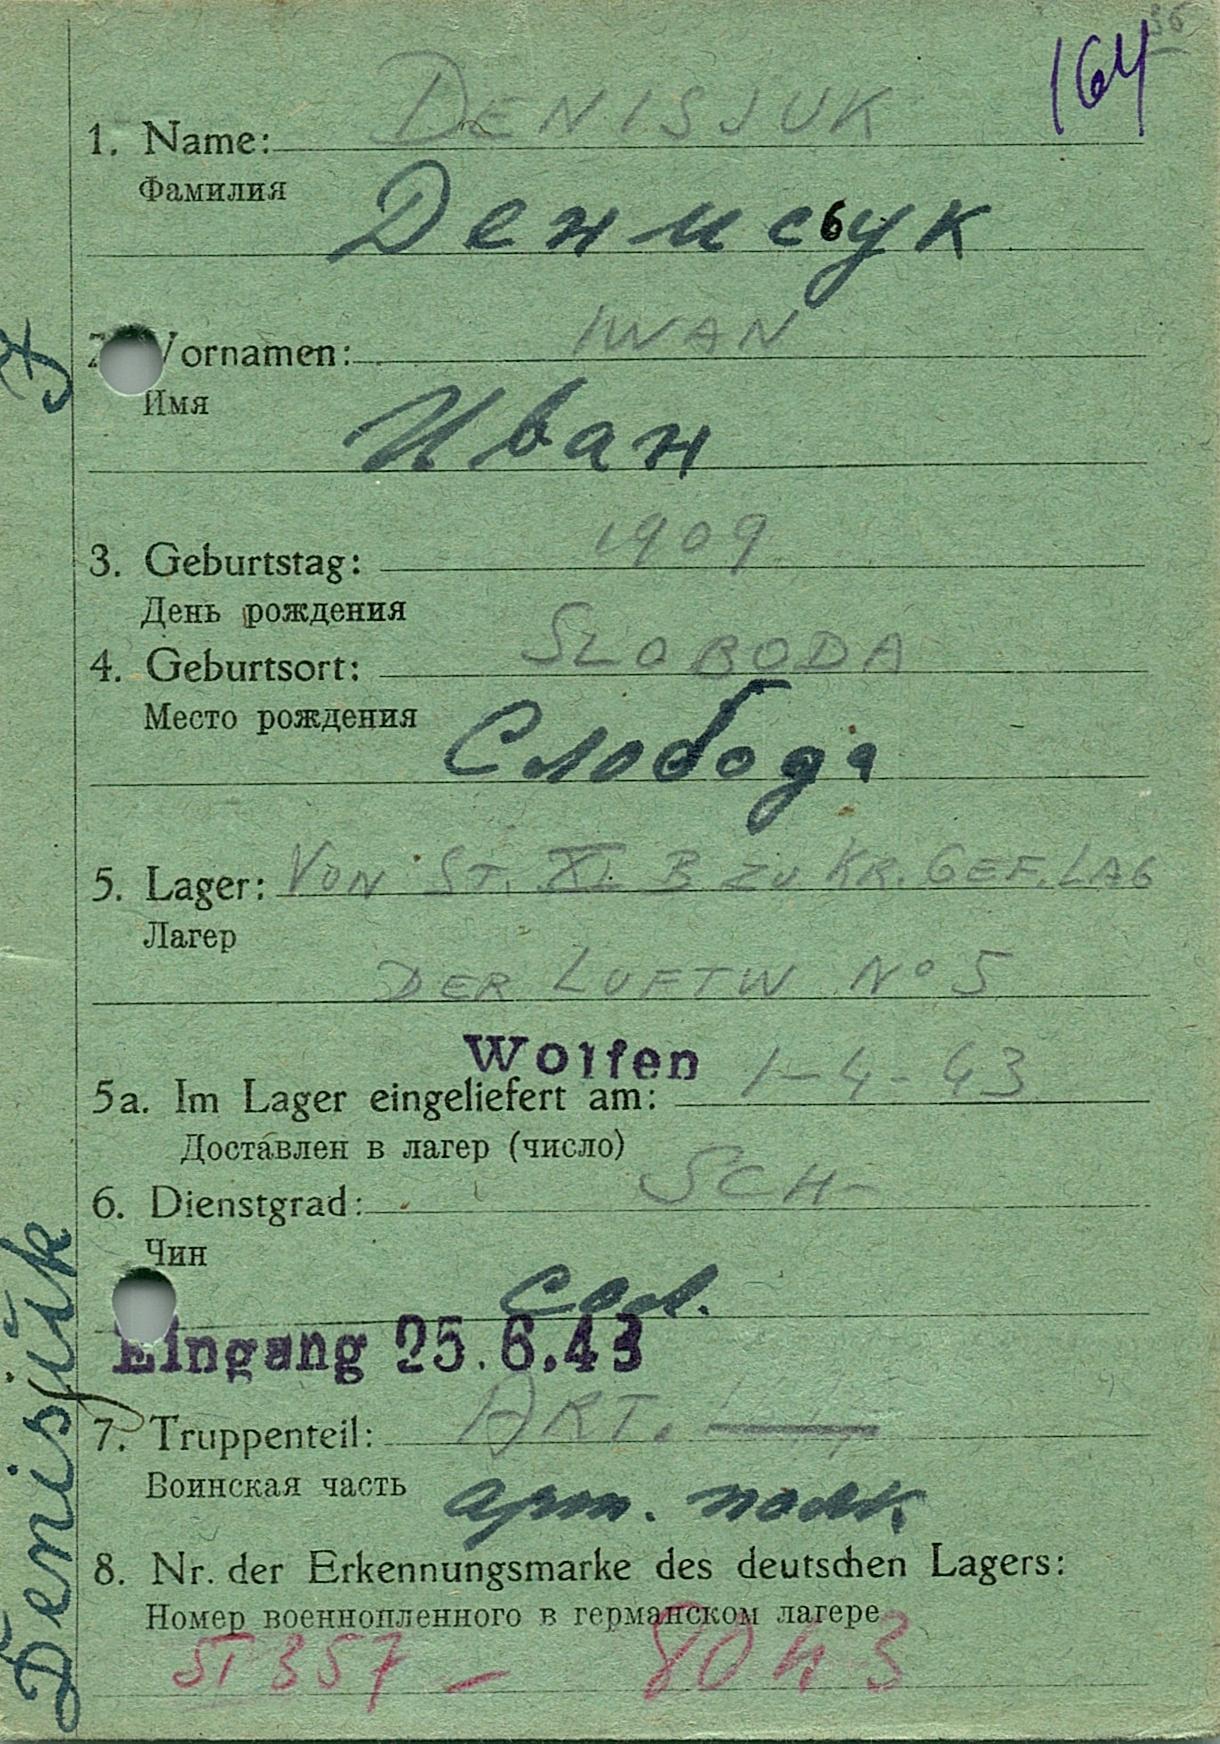 36
164
1. Name: DENISJUK
Фамилия
Денисьук
2. Vornamen: IWAN
Имя
Иван
3. Geburtstag: 1909
День рождения
4. Geburtsort: SLOBODA
Место рождения
Слобода
5. Lager: VON ST. XI B ZU KR. GEF. LAG
Лагер
DER LUFTW No 5
Wolfen
5a. Im Lager eingeliefert am: 1-4-43
Доставлен в лагер (число)
6. Dienstgrad: SCH-
Чин
сол.
Eingang 25.6.43
7. Truppenteil: ART.
Воинская часть
арт. полк
8. Nr. der Erkennungsmarke des deutschen Lagers:
Номер военнопленного в германском лагере
ST 357 - 8043
Denisjuk J